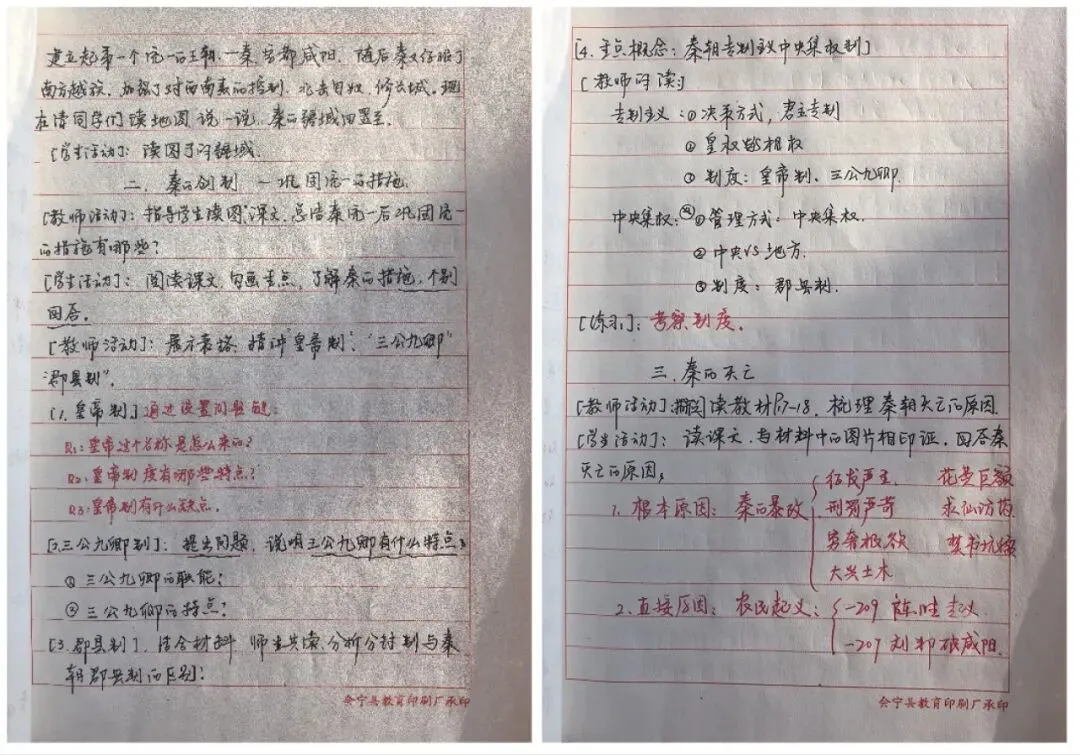 建立起第一个统一的王朝—秦,定都咸阳。随后秦又征服了
南方越族,加强了对西南夷的控制,北击匈奴,修长城。现
在请同学们读地图,说一说,秦的疆域四置至。
[学生活动]:读图了解疆域。
二、秦的创制 —巩固统一的措施
[教师活动]:指导学生读图,课文,总结秦统一后巩固统一
的措施有哪些?
[学生活动]:阅读课文,勾画重点,了解秦的措施,个别
回答。
[教师活动]:展示表格,精讲“皇帝制”、“三公九卿”
“郡县制”。
[1.皇帝制]通过设置问题链:
Q1:皇帝这个名称是怎么来的?
Q2:皇帝制度有哪些特点?
Q3:皇帝制有什么缺点。
[2.三公九卿制]:提出问题,说明三公九卿有什么特点?
① 三公九卿的职能;
② 三公九卿的特点?
[3.郡县制],结合材料 师生共读,分析分封制与秦
朝郡县制的区别:
会宁县教育印刷厂承印
[4.重点概念:秦朝专制主义中央集权制]
[教师解读]
专制主义:①决策方式,君主专制
② 皇权 相权
③ 制度:皇帝制、三公九卿
中央集权:①管理方式:中央集权.
② 中央VS地方.
③ 制度:郡县制.
[练习]:考察制度。
三、秦的灭亡
[教师活动]:阅读教材P17-18,梳理秦朝灭亡的原因.
[学生活动]:读课文,与材料中的图片相印证,回答秦
灭亡的原因;
征发严重 花费巨额
1. 根本原因:秦的暴政 刑罚严苛 求仙访药
穷奢极欲 焚书坑儒
大兴土木
2. 直接原因:农民起义: -209 陈胜起义
-207 刘邦破咸阳.
会宁县教育印刷厂承印